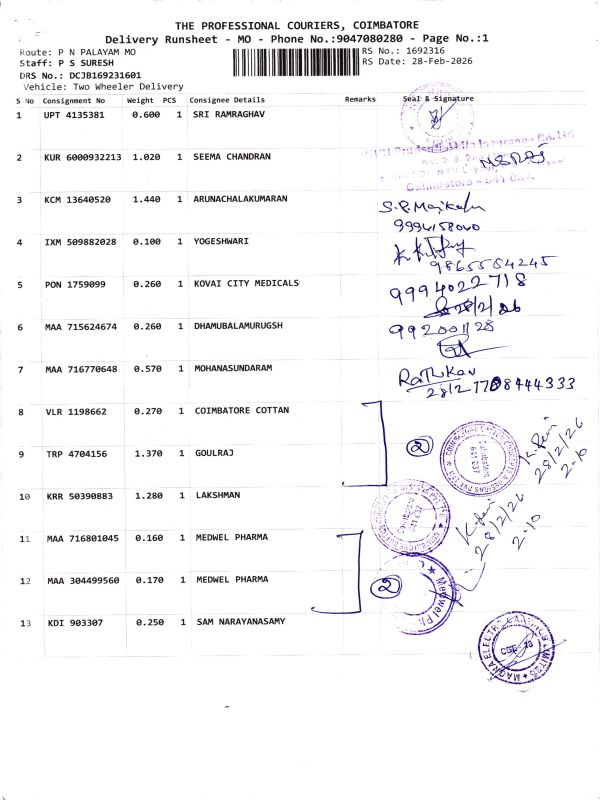 THE PROFESSIONAL COURIERS, COIMBATORE
Delivery Runsheet - MO - Phone No.:9047080280 - Page No.:1
Route: P N PALAYAM MO
RS No.: 1692316
Staff: P S SURESH
RS Date: 28-Feb-2026
DRS No.: DCJB169231601
Vehicle: Two Wheeler Delivery
S No Consignment No Weight PCS Consignee Details Remarks Seal & Signature
1 UPT 4135381 0.600 1 SRI RAMRAGHAV
2 KUR 6000932213 1.020 1 SEEMA CHANDRAN
3 KCM 13640520 1.440 1 ARUNACHALAKUMARAN
9994158040
4 IXM 509882028 0.100 1 YOGESHWARI
9865564245
5 PON 1759099 0.260 1 KOVAI CITY MEDICALS
9994022718
28/2/26
6 MAA 715624674 0.260 1 DHAMUBALAMURUGSH
992001128
7 MAA 716770648 0.570 1 MOHANASUNDARAM
28/2 7708444333
8 VLR 1198662 0.270 1 COIMBATORE COTTAN
2
28/2/26
2.10
9 TRP 4704156 1.370 1 GOULRAJ
10 KRR 50390883 1.280 1 LAKSHMAN
28/2/26
2.10
11 MAA 716801045 0.160 1 MEDWEL PHARMA
2
Medwel Ph
12 MAA 304499560 0.170 1 MEDWEL PHARMA
13 KDI 903307 0.250 1 SAM NARAYANASAMY